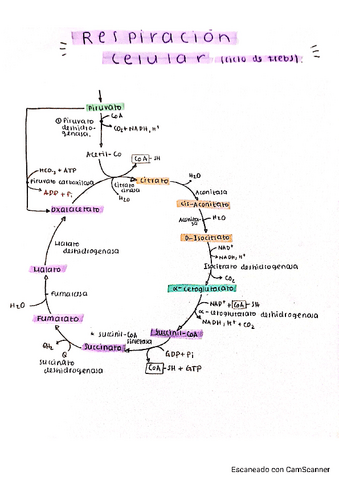 Respiración
celular (ciclo de krebs).
Piruvato
CoA
① Piruvato
deshidro-
genasa.
CO₂ + NADH, H⁺
Acetil-Co
CoA-SH
HCO₃ + ATP
Piruvato carboxilasa
ADP + Pi
Oxalacetato
Citrato
sintasa
H₂O
Citrato
H₂O
Aconitasa
Cis-Aconitato
Aconita-
sa
H₂O
D-Isocitrato
NAD⁺
NADH, H⁺
Isocitrato deshidrogenasa
CO₂
α-cetoglutarato
NAD⁺ + CoA-SH
α-cetoglutarato deshidrogenasa
NADH, H⁺ + CO₂
Succinil-CoA
Succinil-CoA
sintetasa
GDP + Pi
CoA-SH + GTP
Succinato
QH₂
Q
Succinato
deshidrogenasa
Fumarato
H₂O
Fumarasa
Malato
Malato
deshidrogenasa
Escaneado con CamScanner